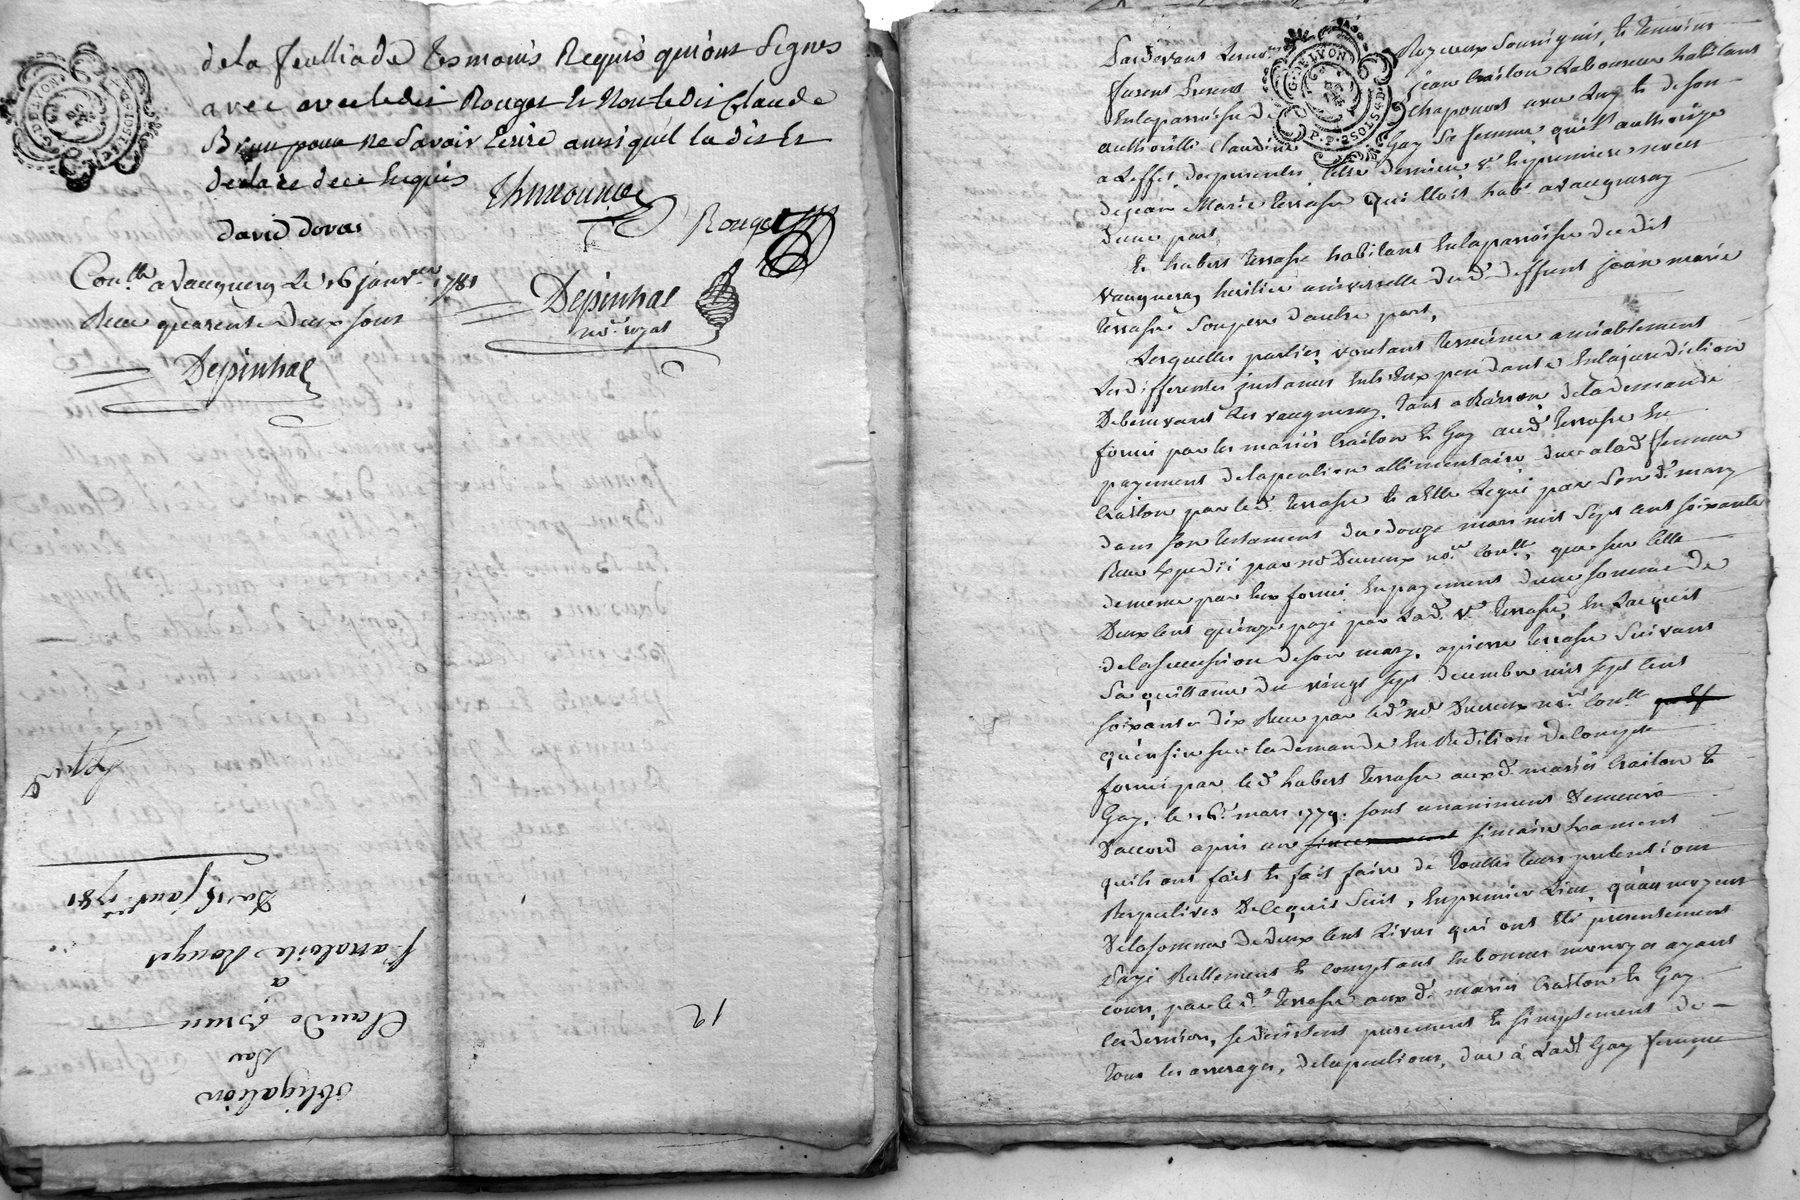 de la feulliade Tesmoins Requis qui ont signes
avec ledit Rouget et Non ledit Claude
Brun pour ne Savoir Ecrire ainsi quil la dit et
declare de ce Enquis
David
Rouget
Conllé a vaugneray Le 16 janvier 1781
Recu quarente Deux sous
Depinhac
Depinhac
nore royal
Du 16 janv. 1781
Rouget
a
Claude Brun
Par
obligation
12
G. DE LYON
Pardevant Les Royaux soussignés, et temoins
furent presents jean Craiton Laboureur habitant
En la parroisse de Chaponost avec luy et de son
authorité Claudine Gay Sa femme qu'il authorize
a Leffet des presentes Elle derniere Ve En premiere noces
de jean Marie terrasse Qui Etoit habt a vaugneray
Dune part
Et hubert terrasse habitant En la parroisse du dit
vaugneray heritier universelle dudt deffunt jean marie
terrasse Son pere d'autre part,
Lesquelles parties voulant terminer amiablement
Les differentes instances Entre Eux pendante En la jurediction
De vaugneray, tant a Raison de la demande
formée par les mariés Craiton et Gay audt terrasse En
payement de la pention allimentaire due a lad femme
Craiton par led terrasse et a Elle Legué par Son dt mary
dans son testament du douze mars mil sept cent soixante
Recu Expedié par me nore, que sur Celle
de meme par Eux formée En payement d'une somme de
Deux cent quinze payé par Lad Ve terrasse, En Lacquit
de la succession de son mary, a pierre terrasse Suivant
Sa quittance du vingt sept decembre mil sept cent
soixante dix Recu par led me nore
qu'enfin sur la demande En Reddition de Compte
formée par led hubert terrasse auxd mariés Craiton et
Gay, le 16 mars 1779. sont unaniment Demeuré
D'accord apres un Examen
quils ont fait et fait faire de toutes leurs pretentions
Respectives De Ce qui Suit, En premier Lieu, qu'au moyen
De la somme de deux cent Livres qui ont Eté presentement
Payé Reellement et comptant En bonnes monoyes ayant
cours, par led terrasse auxd mariés Craiton et Gay
Ces derniers, se desistent purement et simplement de
tous les arrerages, de la pention, due á Ladt Gay femme